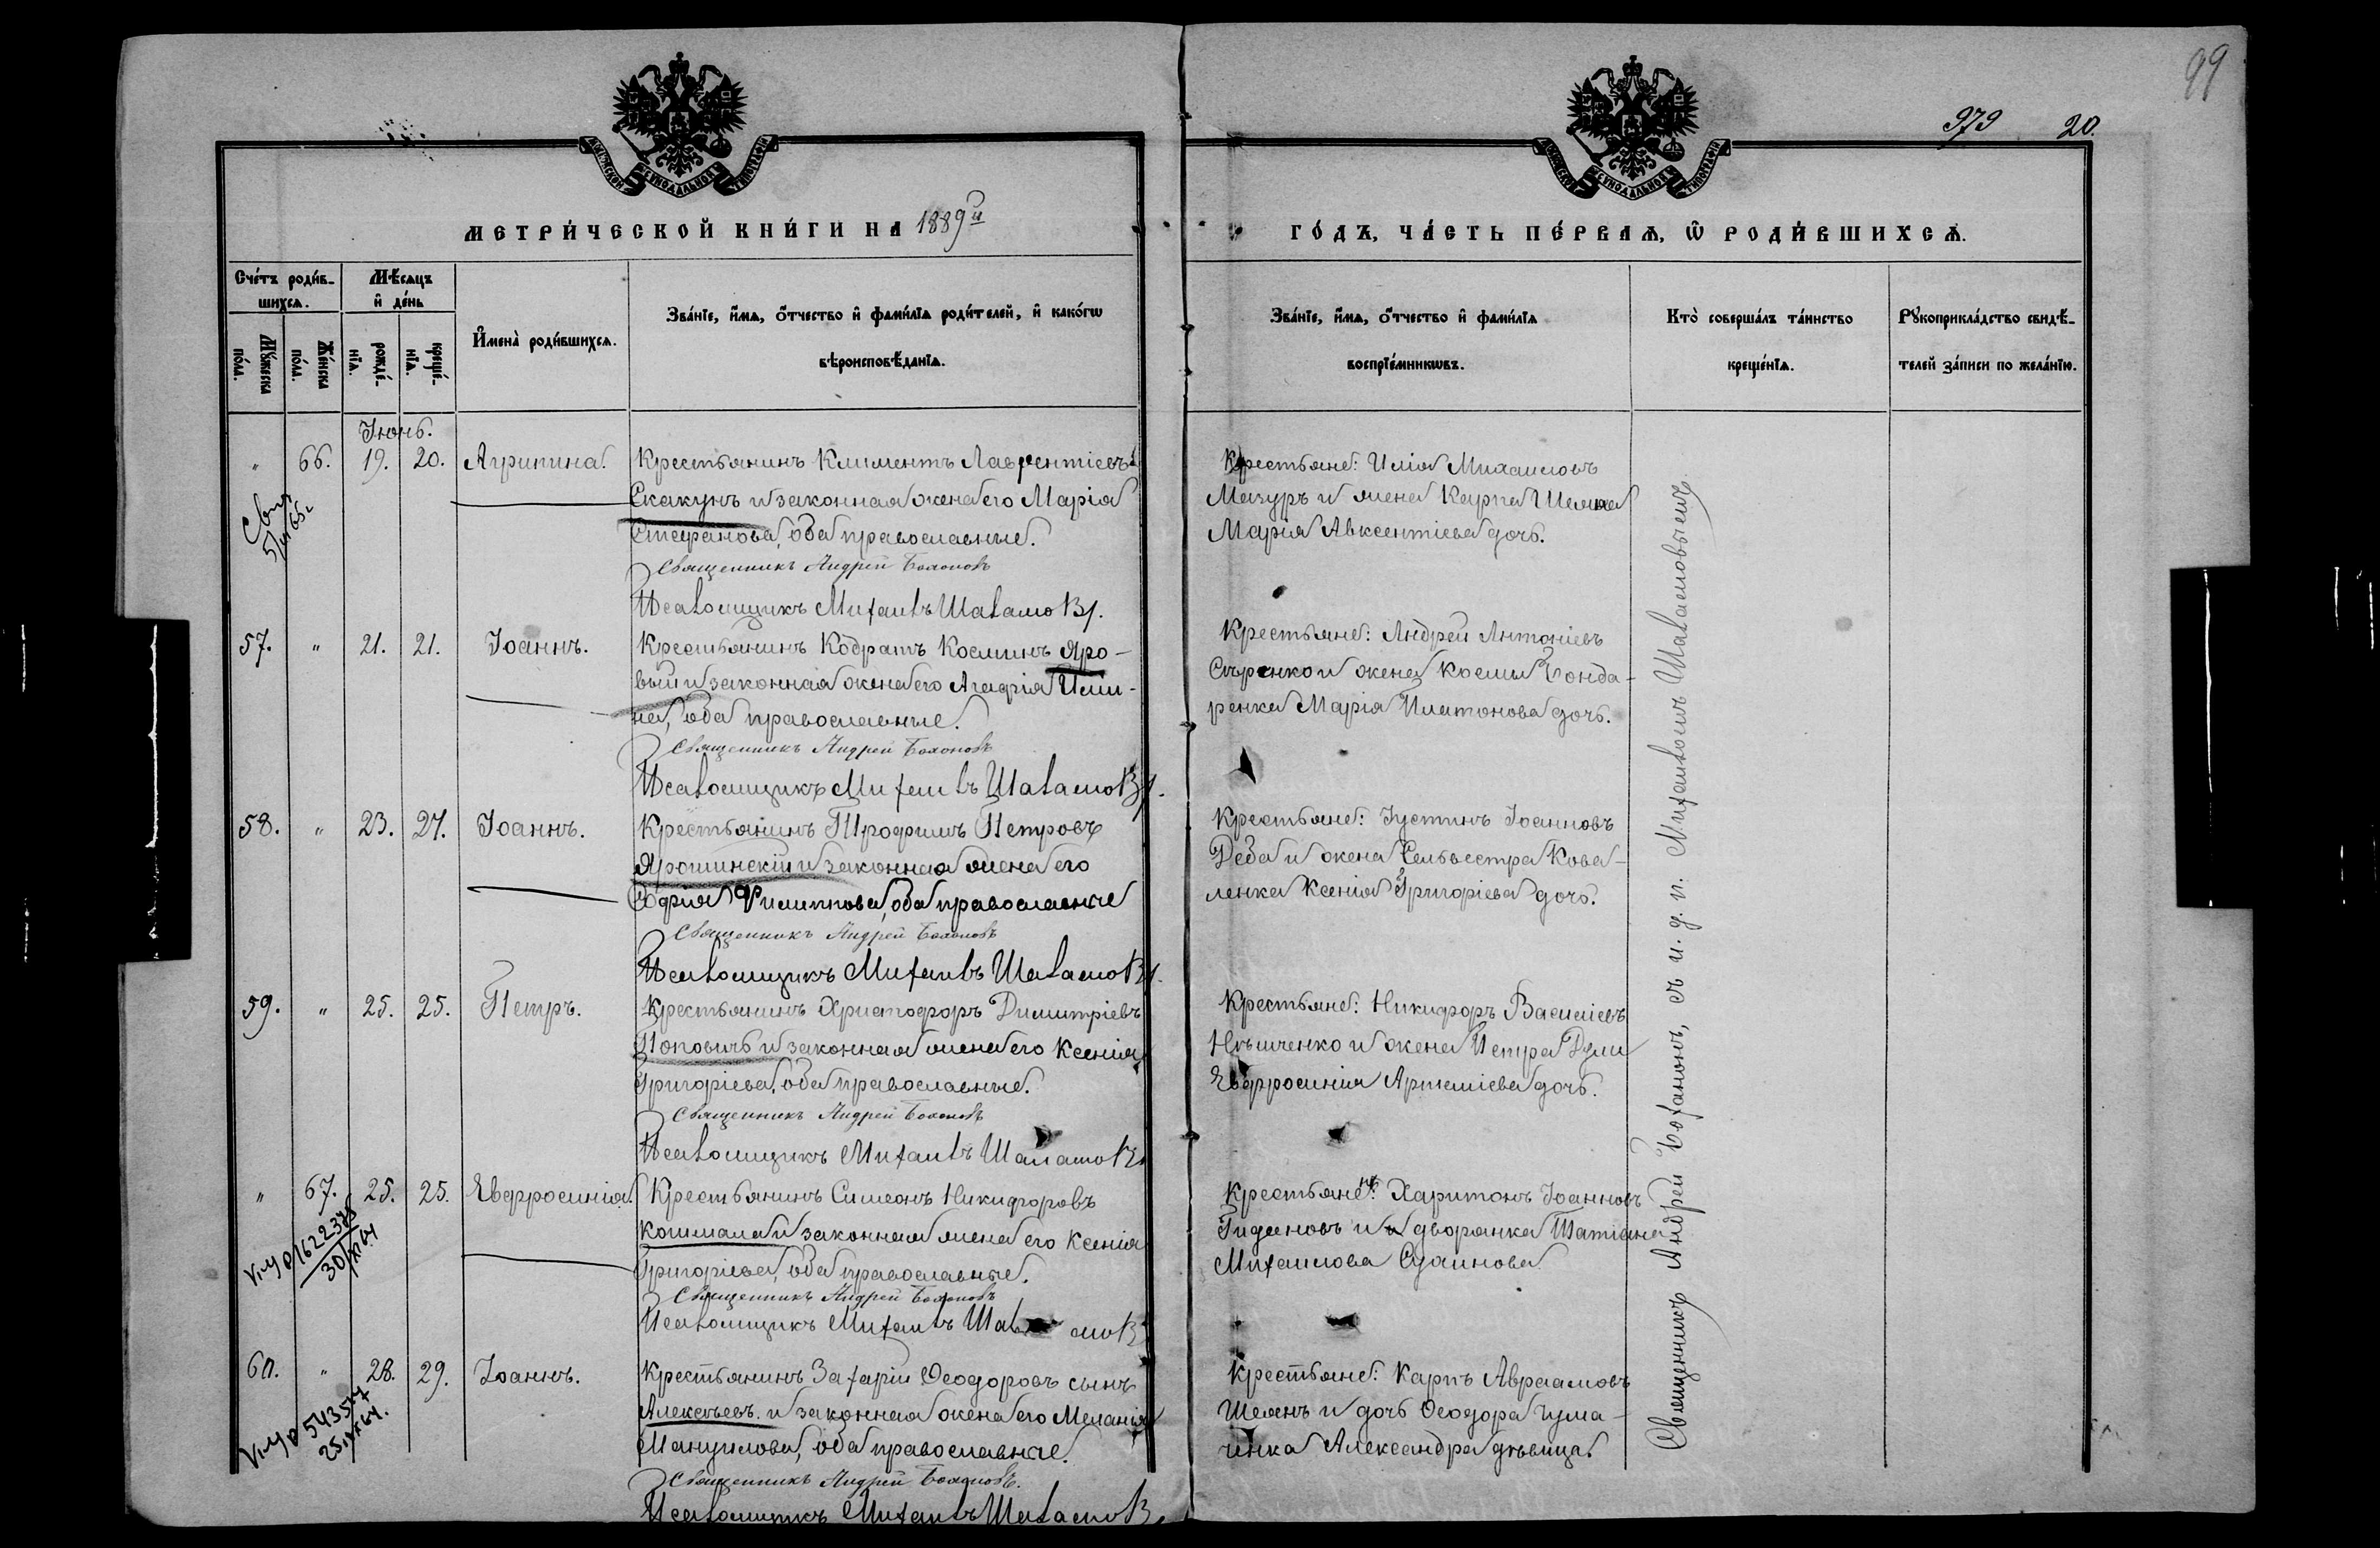 99
979 20.
МЕТРИ́ЧЕСКОЙ КНИ́ГИ НА 1889й
ГО́ДЪ, ЧА́СТЬ ПЕ́РВАѦ, Ѡ РОДИ́ВШИХСѦ.
Сче́тъ роди́в-
шихсѧ.
Мѣ́сѧцъ
и҆ де́нь
Мꙋ́жеска
по́ла.
Же́нска
по́ла.
рожде́-
нїѧ.
креще́-
нїѧ.
И҆мена̀ роди́вшихсѧ.
Зва́нїе, и҆́мѧ, ѻ҆́тчество и҆ фами́лїѧ роди́телей, и҆ како́гѡ
вѣроисповѣ́данїѧ.
Зва́нїе, и҆́мѧ, ѻ҆́тчество и҆ фами́лїѧ
воспрїе́мникѡвъ.
Кто̀ соверша́лъ та́инство
креще́нїѧ.
Рꙋкоприкла́дство свидѣ́-
телей за́писи по жела́нїю.
Іюнь.
" 66. 19. 20. Агрипина. Крестьянинъ Климентъ Лаврентіевъ
Скакунъ и законная жена его Марія
Стефанова, оба православные.
Священникъ Андрей
Псаломщикъ Михаилъ
Крестьяне: Илія Михаиловъ
Мазуръ и жена Карпа Шеляна
Марія Авксентіева дочь.
57. " 21. 21. Іоаннъ. Крестьянинъ Кодратъ Косминъ Яро-
вый и законная жена его Агафія Или-
на, оба православные.
Священникъ Андрей
Псаломщикъ Михаилъ
Крестьяне: Андрей Антоніевъ
Съренко и жена Космы Бонда-
ренка Марія Платонова дочь.
58. " 23. 24. Іоаннъ. Крестьянинъ Трофимъ Петровъ
Ярошинскій и законная жена его
Софія Филиппова, оба православные
Священникъ Андрей
Псаломщикъ Михаилъ
Крестьяне: Іустинъ Іоанновъ
Деба и жена Сильвестра Кова-
ленка Ксенія Григоріева дочь.
59. " 25. 25. Петръ. Крестьянинъ Христофоръ Димитріевъ
Поповичъ и законная жена его Ксенія
Григоріева, оба православные.
Священникъ Андрей
Псаломщикъ Михаилъ
Крестьяне: Никифоръ Василіевъ
Ильченко и жена Петра
Евфросинія Артеміева дочь.
" 67. 25. 25. Евфросинія. Крестьянинъ Симеонъ Никифоровъ
Кошмала и законная жена его Ксенія
Григорьева, оба православные.
Священникъ Андрей
Псаломщикъ Михаилъ
Крестьянинъ: Харитонъ Іоанновъ
и дворянка Татіана
Михаилова
60. " 28. 29. Іоаннъ. Крестьянинъ Захарій Ѳеодоровъ сынъ
Алексѣевъ и законная жена его Меланія
Мануилова, оба православные.
Священникъ Андрей
Псаломщикъ Михаилъ
Крестьяне: Карпъ Авраамовъ
Шелянъ и дочь Ѳеодора Чума-
ченка Александра дѣвица.
Священникъ Андрей съ и. д. п. Михаиломъ